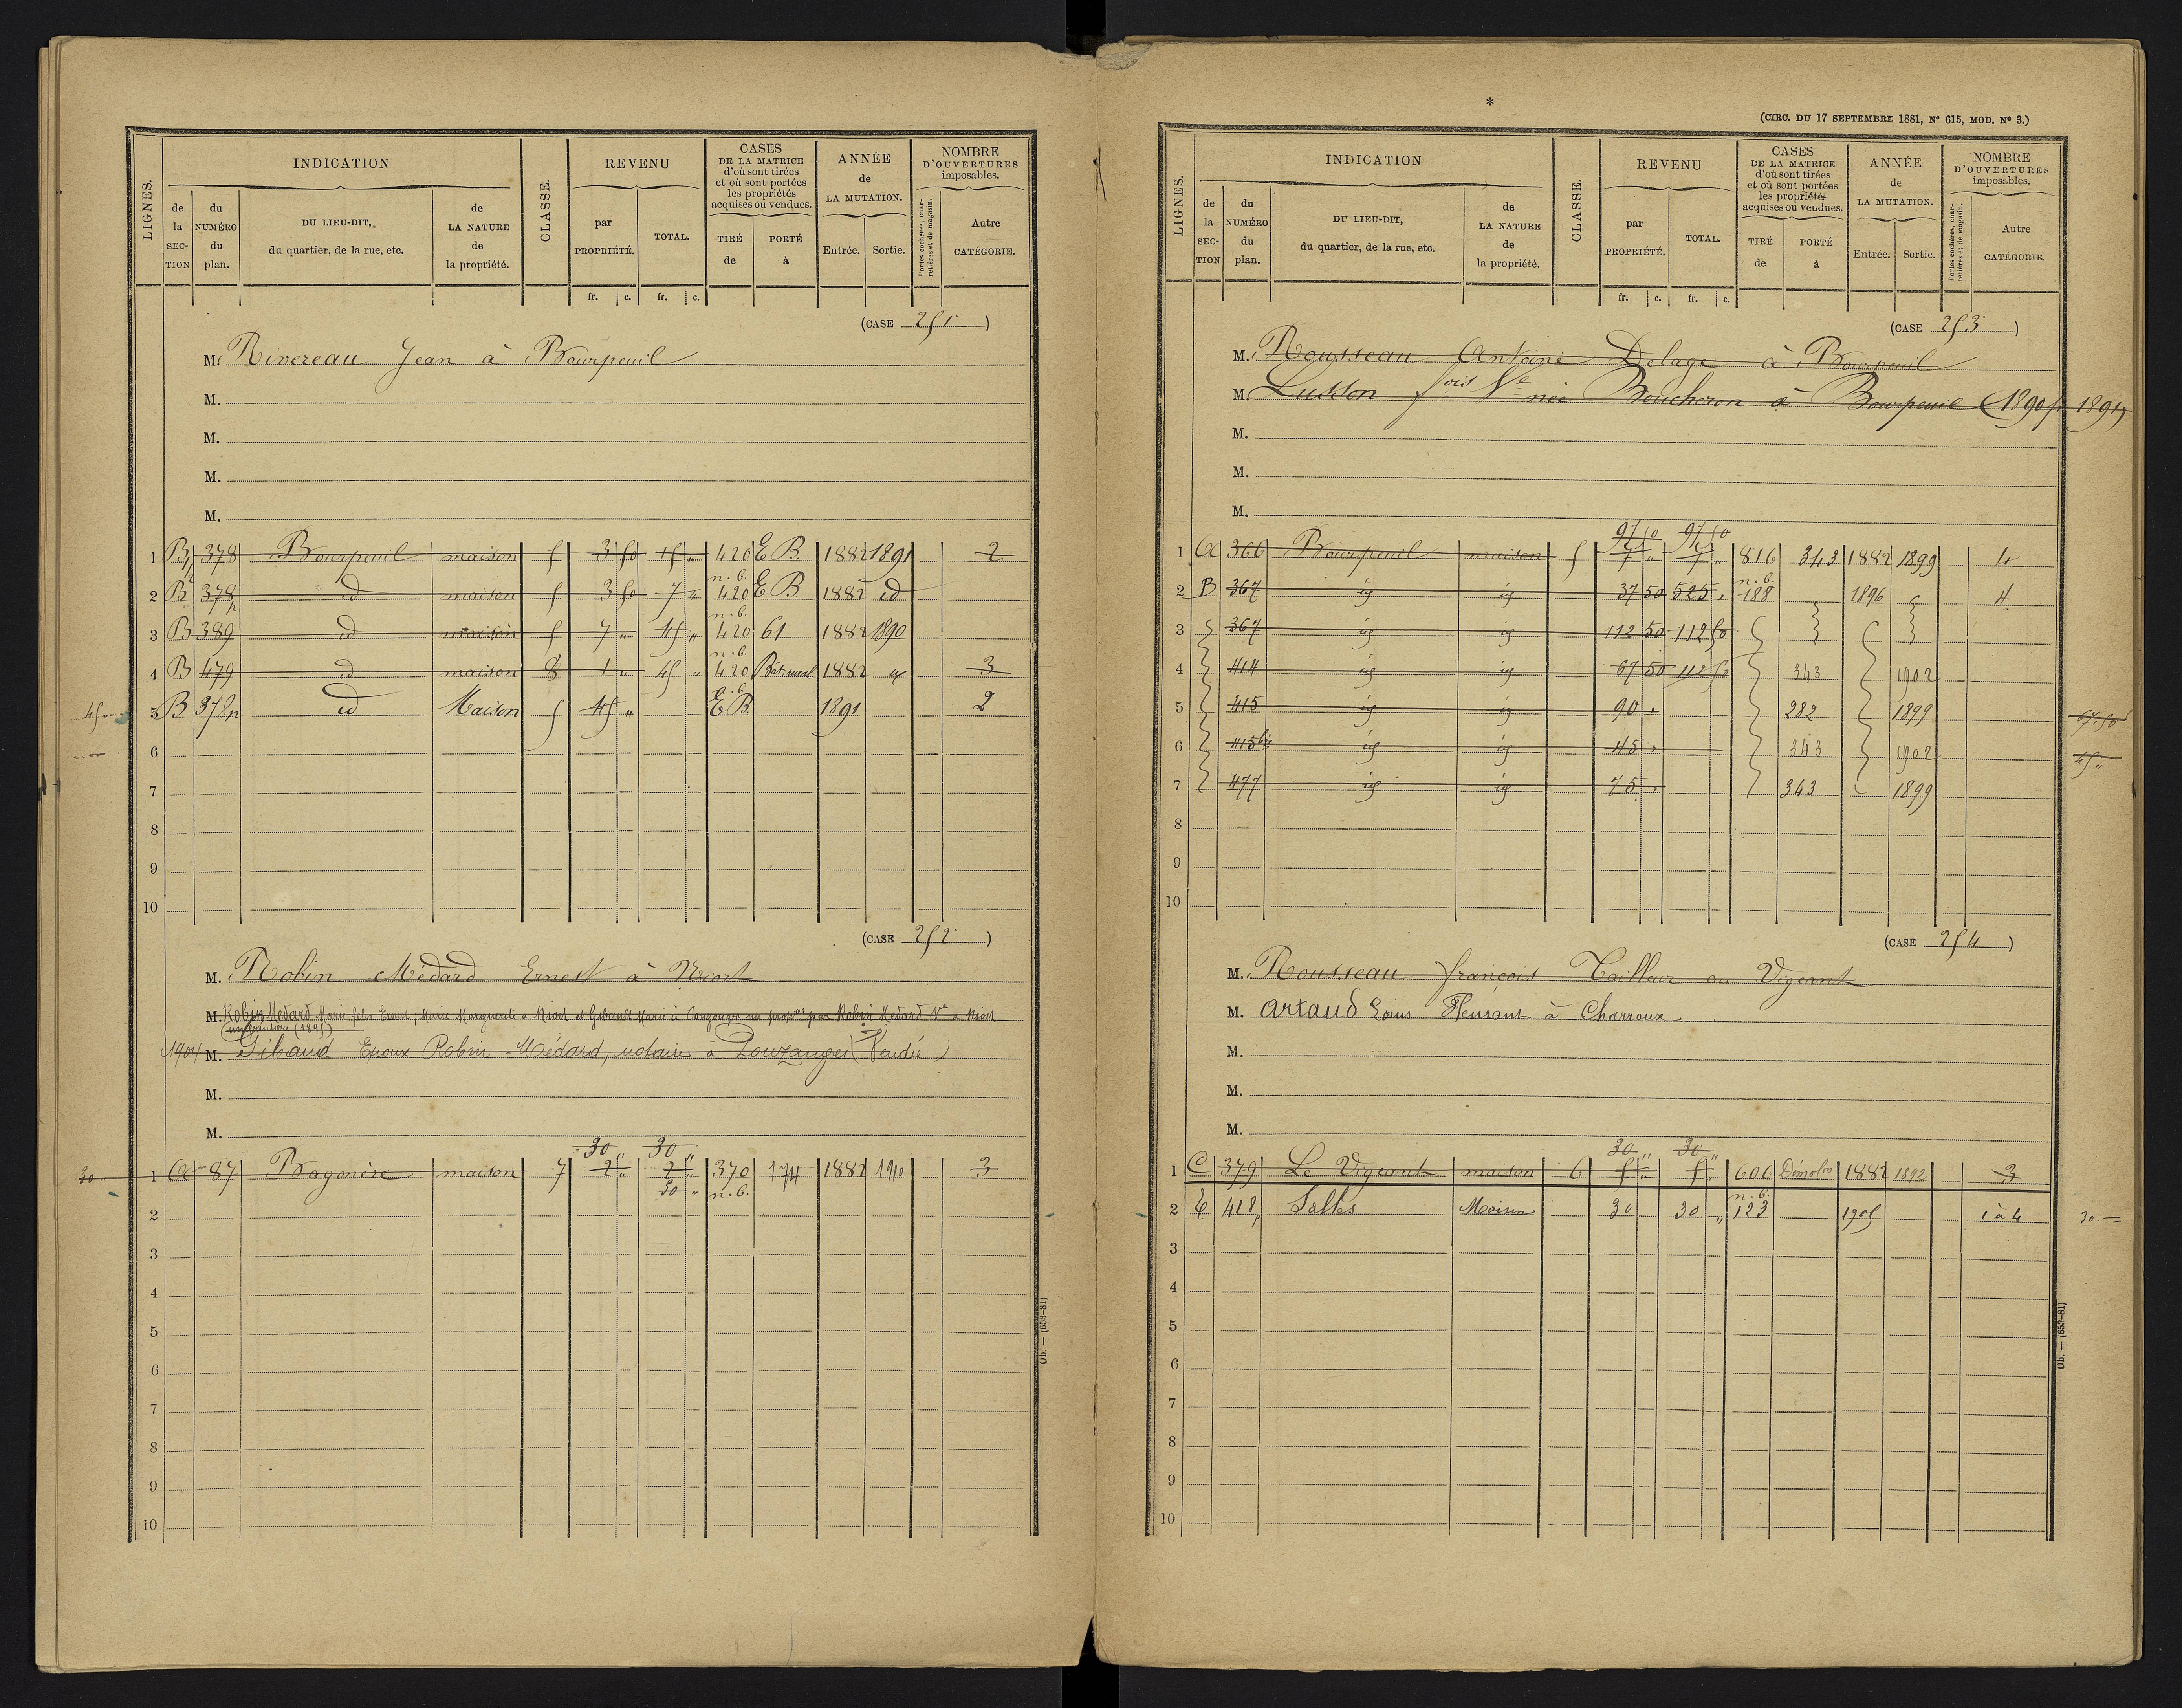 LIGNES.
INDICATION
CLASSE.
REVENU
CASES
DE LA MATRICE
d'où sont tirées
et où sont portées
les propriétés
acquises ou vendues.
ANNÉE
de
LA MUTATION.
NOMBRE
D'OUVERTURES
imposables.
de la SECTION
du NUMÉRO du plan.
DU LIEU-DIT,
du quartier, de la rue, etc.
de LA NATURE de la propriété.
par PROPRIÉTÉ.
TOTAL.
TIRÉ de
PORTÉ à
Entrée.
Sortie.
Portes cochères, charretières et de magasin.
Autre CATÉGORIE.
fr. c. fr. c.
(CASE 251)
M. Rivereau Jean à Bourpeuil
M.
M.
M.
M.
1 B 378 Bourpeuil maison 5 3 50 15 " 420 E B 1882 1891 2
2 B 378 id maison 5 3 50 7 " n.b. 420 E B 1882 id
3 B 389 id maison 5 7 " 45 " n.b. 420 61 1882 1890
4 B 479 id maison 8 1 " 45 " n.b. 420 Bât. rural 1882 3
45 5 B 378p id Maison 5 45 " n.b. E B 1891 2
6
7
8
9
10
(CASE 252)
M. Robin Médard Ernest à Niort
M. Robin Médard Marie Ernest, Marie Marguerite à Niort et Gibault Marie à par Robin Médard Ve à Niort
(1895)
1904 M. Gibaud Epoux Robin Médard, notaire à Pouzauges (Vendée)
M.
M.
30 " 30 "
30 " 1 A 87 Bagonère maison 7 2 " 2 " 370 174 1882 1910 3
30 " n.b.
2
3
4
5
6
7
8
9
10
Ob. — (653-81)
*
(CIRC. DU 17 SEPTEMBRE 1881, N° 615, MOD. N° 3.)
LIGNES.
INDICATION
CLASSE.
REVENU
CASES
DE LA MATRICE
d'où sont tirées
et où sont portées
les propriétés
acquises ou vendues.
ANNÉE
de
LA MUTATION.
NOMBRE
D'OUVERTURES
imposables.
de la SECTION
du NUMÉRO du plan.
DU LIEU-DIT,
du quartier, de la rue, etc.
de LA NATURE de la propriété.
par PROPRIÉTÉ.
TOTAL.
TIRÉ de
PORTÉ à
Entrée.
Sortie.
Portes cochères, charretières et de magasin.
Autre CATÉGORIE.
fr. c. fr. c.
(CASE 253)
M. Rousseau Antoine Delage à Bourpeuil
M. Lusson Fois Ve née Boucheron à Bourpeuil (1890 pr 1891)
M.
M.
M.
97 50 97 50
1 A 366 Bourpeuil maison 5 7 " 7 " 816 343 1882 1899 4
2 B 367 id id 37 50 525 " n.b. 188 1896 4
3 367 id id 112 50 112 50
4 414 id id 67 50 112 50 343 1902
5 415 id id 90 " 282 1899 67.50
6 415 bis id id 45 " 343 1902 45 "
7 477 id id 75 " 343 1899
8
9
10
(CASE 254)
M. Rousseau François Tailleur au Vigeant
M. Artaud Louis Fleurant à Charroux
M.
M.
M.
30 " 30 "
1 C 379 Le Vigeant maison 6 5 " 5 " 606 Démolon 1882 1892 3
2 C 418p Salles Maison 30 30 " n.b. 123 1905 1 à 4 30.—
3
4
5
6
7
8
9
10
Ob. — (653-81)